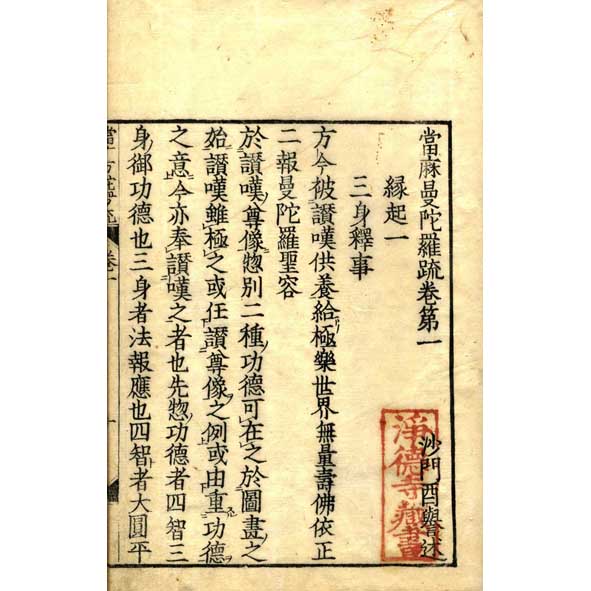 當麻曼陀羅疏卷第一
沙門酉譽述
淨德寺藏書
縁起一
三身釋事
方今被讃嘆供養給極樂世界無量壽佛依正
二報曼陀羅聖容
於讃嘆尊像惣別二種功德可在之於圖畫之
始讃嘆雖極之或任讃尊像之例或由重功德
之意今亦奉讃嘆之者也先惣功德者四智三
身御功德也三身者法報應也四智者大圓平
卷一